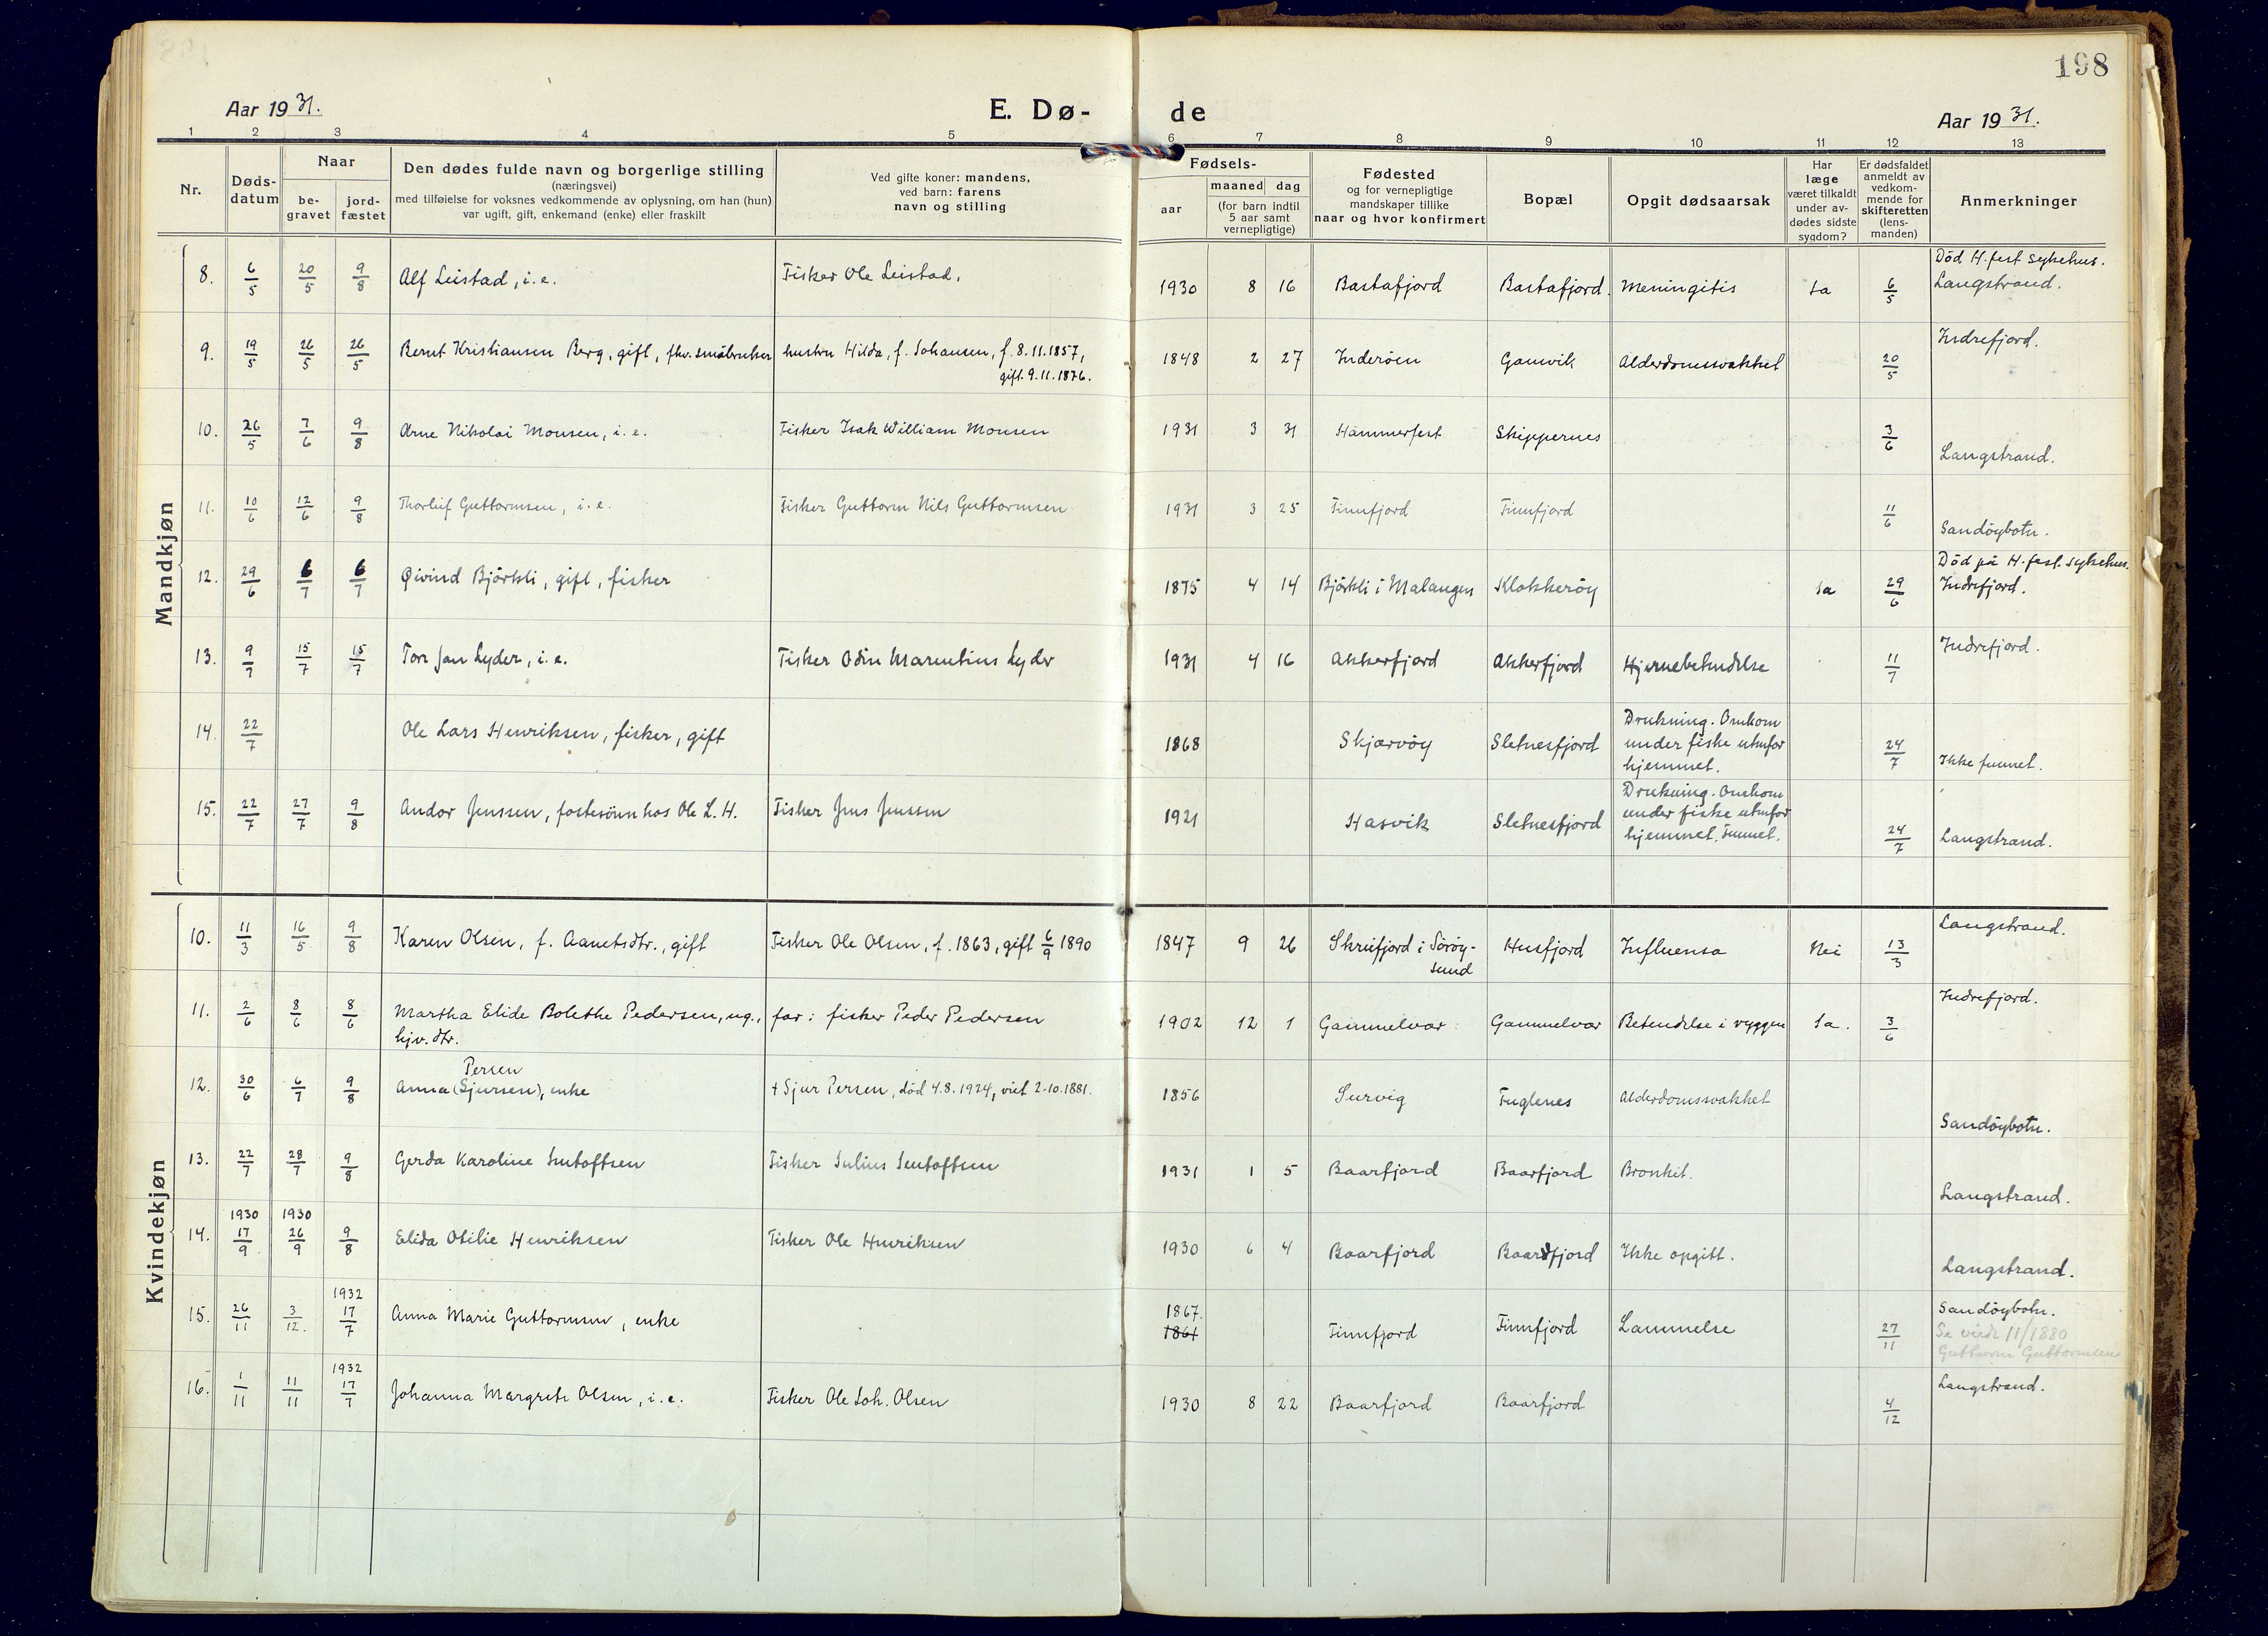 198
Aar 1931.
E. Dø-
de
Aar 1931.
1 2 3 4 5 6 7 8 9 10 11 12 13
Nr.
Døds-
datum
Naar
be-
gravet
jord-
fæstet
Den dødes fulde navn og borgerlige stilling
(næringsvei)
med tilføielse for voksnes vedkommende av oplysning, om han (hun)
var ugift, gift, enkemand (enke) eller fraskilt
Ved gifte koner: mandens,
ved barn: farens
navn og stilling
Fødsels-
aar
maaned dag
(for barn indtil
5 aar samt
vernepligtige)
Fødested
og for vernepligtige
mandskaper tillike
naar og hvor konfirmert
Bopæl
Opgit dødsaarsak
Har
læge
været tilkaldt
under av-
dødes sidste
sygdom?
Er dødsfaldet
anmeldt av
vedkom-
mende for
skifteretten
(lens-
manden)
Anmerkninger
Mandkjøn
8. 6/5 20/5 9/8 Alf Leistad, i.e. Fisker Ole Leistad. 1930 8 16 Bastafjord Bastafjord. Meningitis Ja 6/5 Død H.fest sykehus.
Langstrand.
9. 19/5 26/5 26/5 Bernt Kristiansen Berg, gift, fhv. småbruker hustru Hilda, f. Johansen, f. 8.11.1857,
gift 9.11.1876.
1848 2 27 Inderöen Gamvik Alderdomssvakhet 20/5 Indrefjord.
10. 26/5 7/6 9/8 Arne Nikolai Monsen, i.e. Fisker Isak William Monsen 1931 3 31 Hammerfest Skippernes 3/6 Langstrand.
11. 10/6 12/6 9/8 Thorleif Guttormsen, i.e. Fisker Guttorm Nils Guttormsen 1931 3 25 Finnfjord Finnfjord 11/6 Sandöybotn.
12. 29/6 6/7 6/7 Øivind Björkli, gift, fisker 1875 4 14 Björkli i Malangen Klokkeröy Ja 29/6 Död på H.fest. sykehus.
Indrefjord.
13. 9/7 15/7 15/7 Tor Jan Lyder, i.e. Fisker Odin Marentius Lyder 1931 4 16 Akkerfjord Akkerfjord Hjernebetendelse 11/7 Indrefjord.
14. 22/7 Ole Lars Henriksen, fisker, gift 1868 Skjærvöy Sletnesfjord Drukning. Omkom
under fiske utenfor
hjemmet.
24/7 Ikke funnet.
15. 22/7 27/7 9/8 Andor Jenssen, fostesönn hos Ole L.H. Fisker Jens Jenssen 1921 Hasvik Sletnesfjord Drukning. Omkom
under fiske utenfor
hjemmet. Funnet.
24/7 Langstrand.
Kvindekjøn
10. 11/3 16/5 9/8 Karen Olsen, f. Aanetsdtr., gift Fisker Ole Olsen, f. 1863, gift 6/9 1890 1847 9 26 Skreifjord i Söröy-
sund
Husfjord Influensa Nei 13/3 Langstrand.
11. 2/6 8/6 8/6 Martha Elide Bolethe Pedersen, ug.,
hjv. dtr.
far: fisker Peder Pedersen 1902 12 1 Gammelvær Gammelvær Betendelse i ryggen Ja. 3/6 Indrefjord.
12. 30/6 6/7 9/8 Persen
Anna (Sjursen), enke + Sjur Persen, död 4.8.1924, viet 2-10.1881. 1856 Survig Fuglenes Alderdomssvakhet Sandöybotn.
13. 22/7 28/7 9/8 Gerda Karoline Sentoffsen Fisker Julius Sentoffsen 1931 1 5 Baarfjord Baarfjord Bronkit. Langstrand.
1930 1930
14. 17/9 26/9 9/8 Elida Otilie Henriksen Fisker Ole Henriksen 1930 6 4 Baarfjord Baardfjord Ikke opgitt. Langstrand.
1932
15. 26/11 3/12. 17/7 Anna Marie Guttormsen, enke 1867.
1861
Finnfjord Finnfjord Lammelse 27/11 Sandöybotn.
Se viede 11/1880
Guttorm Guttormsen
1932
16. 1/11 11/11 17/7 Johanna Margrete Olsen, i.e. Fisker Ole Joh. Olsen 1930 8 22 Baarfjord Baarfjord 4/12 Langstrand.